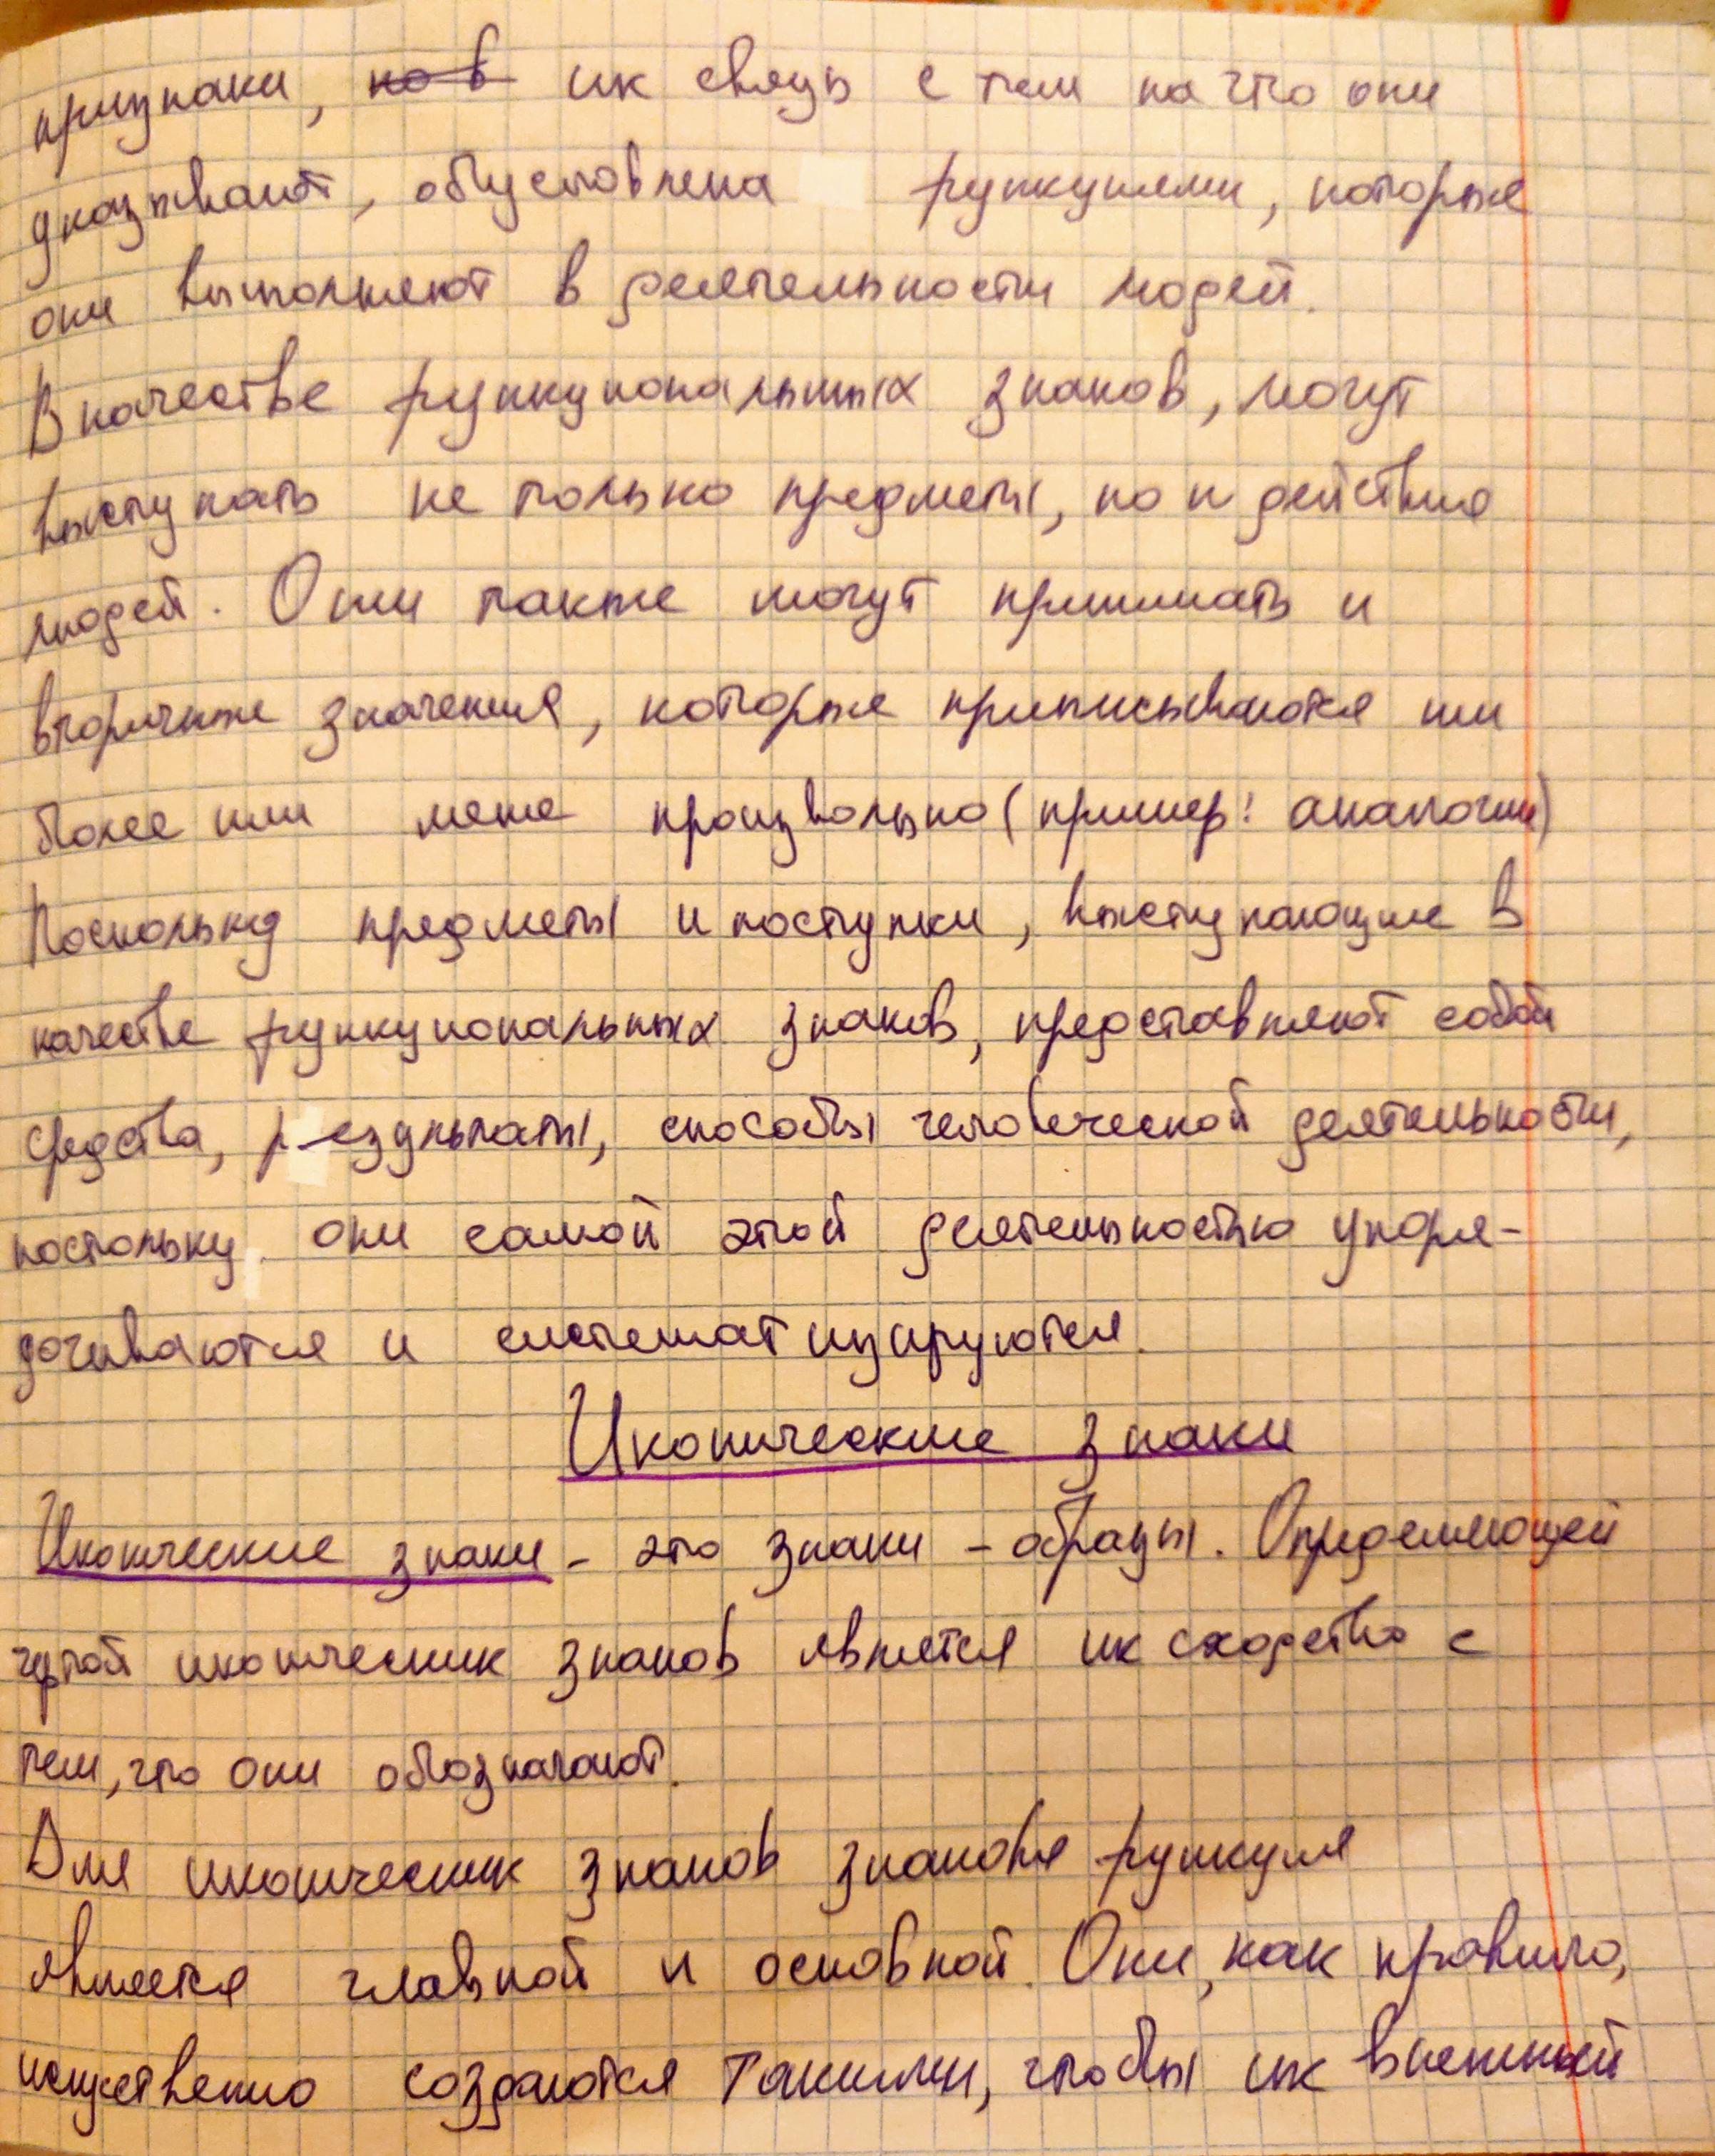 признаки, но в их связь с тем на что они
указывают, обусловлена функциями, которые
они выполняют в деятельности людей.
В качестве функциональных знаков, могут
выступать не только предметы, но и действия
людей. Они также могут принимать и
вторичные значения, которые приписываются им
более или менее произвольно (пример: аналогии)
Поскольку предметы и поступки, выступающие в
качестве функциональных знаков, представляют собой
средства, результаты, способы человеческой деятельности,
постольку они самой этой деятельностью упоря-
дочиваются и систематизируются.
Иконические знаки
Иконические знаки - это знаки - образы. Определяющей
чертой иконических знаков является их сходство с
тем, что они обозначают.
Для иконических знаков знаковая функция
является главной и основной. Они, как правило,
искуственно создаются такими, чтобы их внешний